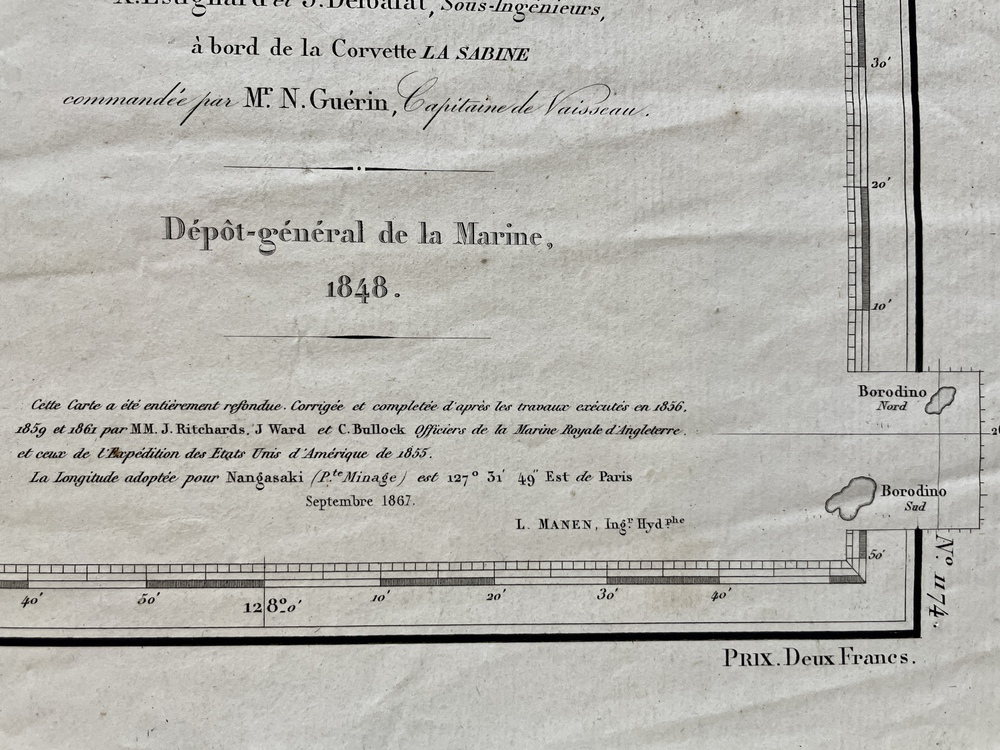 X. Estignard et J. Delbalat, Sous-Ingénieurs,
à bord de la Corvette LA SABINE
commandée par Mr. N. Guérin, Capitaine de Vaisseau.
Dépôt-général de la Marine,
1848.
Cette Carte a été entièrement refondue. Corrigée et completée d'après les travaux exécutés en 1856,
1859 et 1861 par MM. J. Ritchards, J Ward et C. Bullock Officiers de la Marine Royale d'Angleterre,
et ceux de l'Expédition des Etats Unis d'Amérique de 1855.
La Longitude adoptée pour Nangasaki (P.te Minage) est 127° 31' 49" Est de Paris
Septembre 1867.
L. MANEN, Ingr. Hydphe
30'
20'
10'
Borodino
Nord
Borodino
Sud
50'
40'
50'
128°0'
10'
20'
30'
40'
No. 1174.
PRIX. Deux Francs.